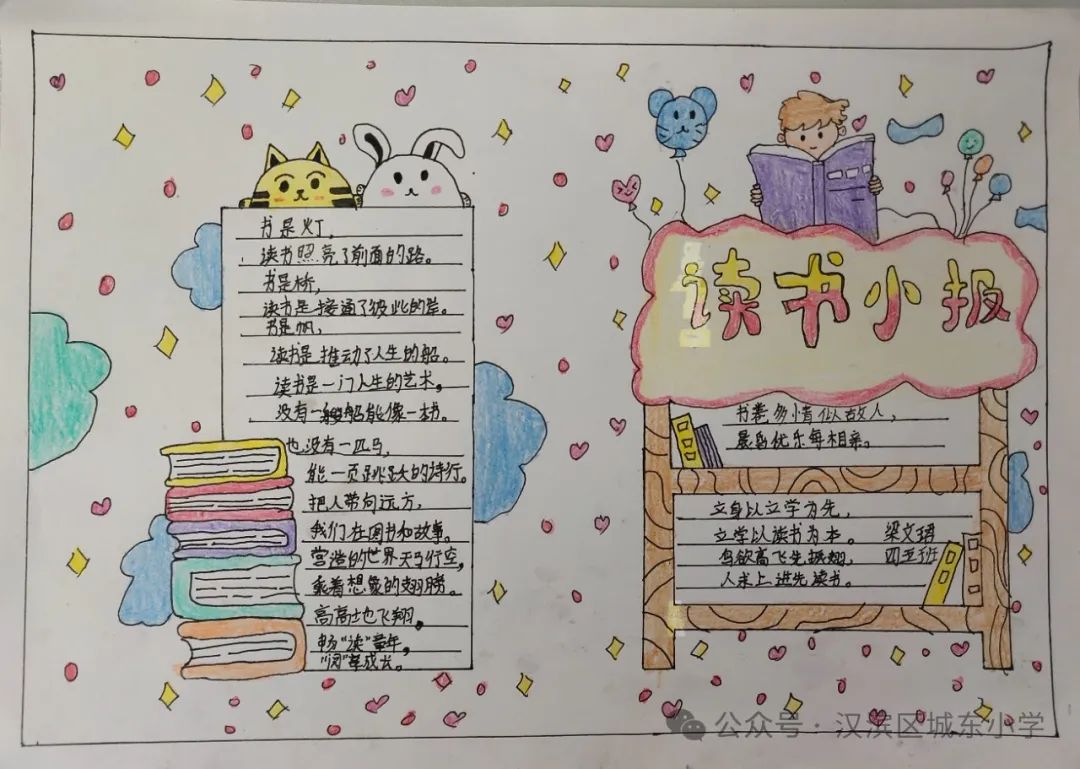 书是灯，
读书照亮了前面的路。
书是桥，
读书是接通了彼此的岸。
书是帆，
读书是推动了人生的船。
读书是一门人生的艺术，
没有一艘船能像一本书。
也没有一匹马，
能一页跳跃的诗行。
把人带向远方，
我们在图书和故事。
营造的世界天马行空，
乘着想象的翅膀。
高高地飞翔，
畅“读”童年，
“阅”享成长。
读书小报
书卷多情似故人，
晨昏忧乐每相亲。
立身以立学为先，
立学以读书为本。 梁文珸
鸟欲高飞先振翅， 四五班
人求上进先读书。
公众号·汉滨区城东小学